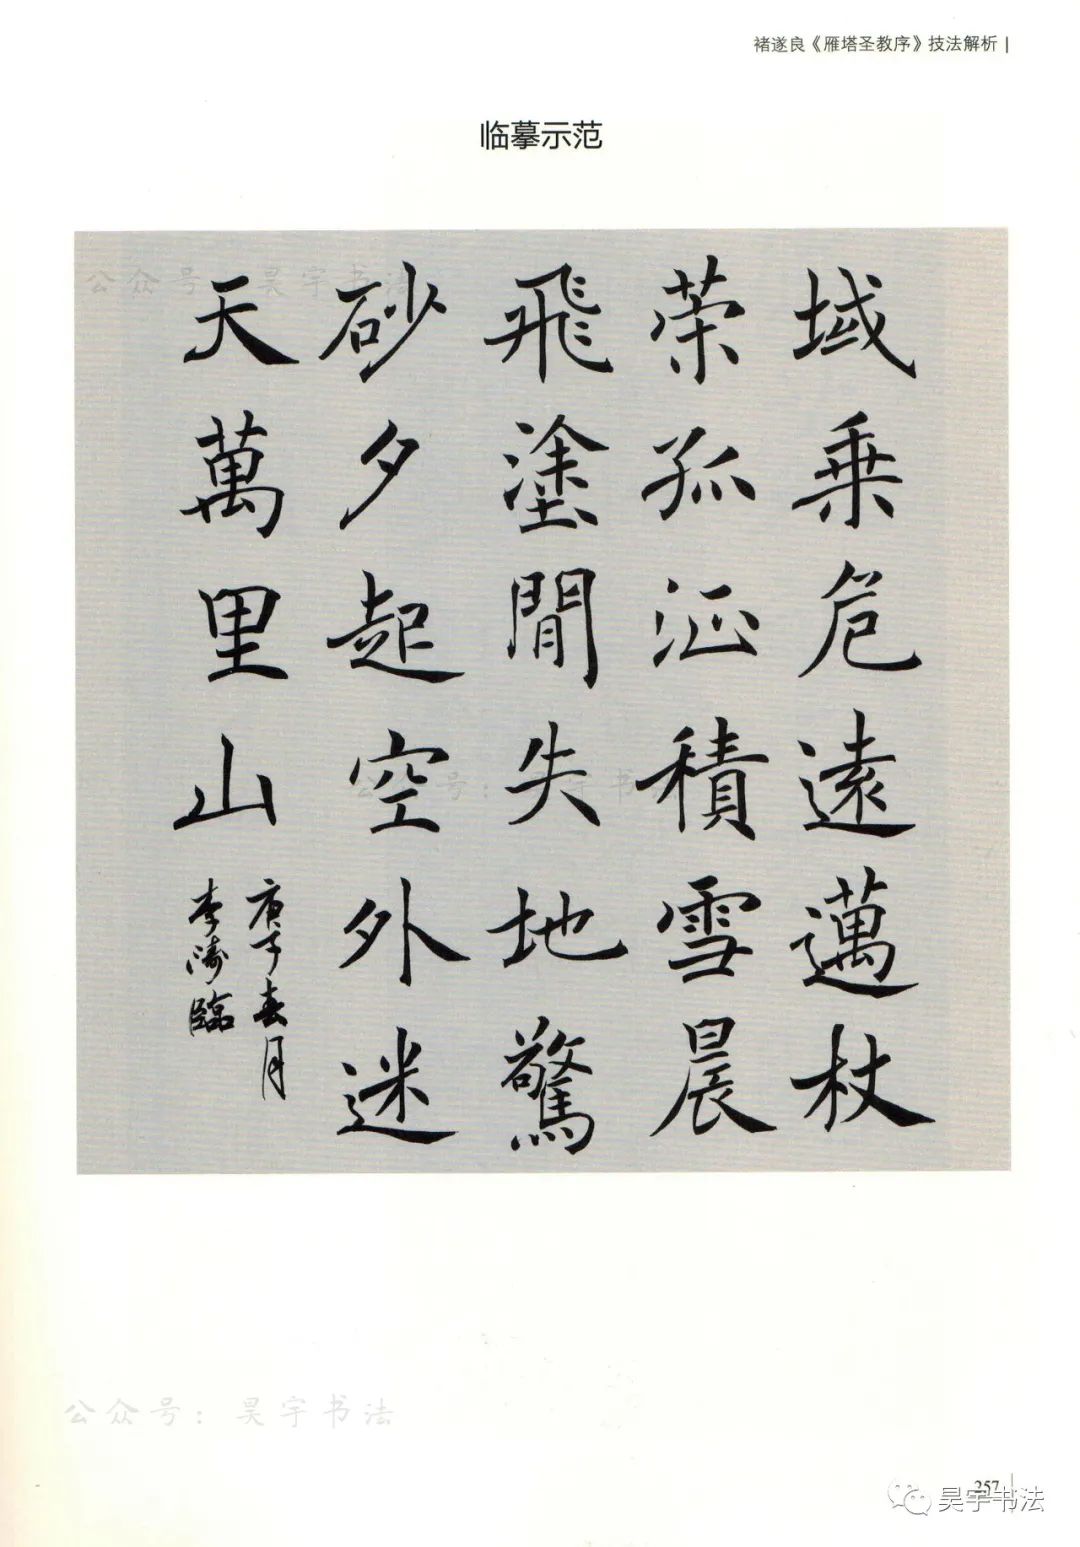 褚遂良《雁塔圣教序》技法解析
临摹示范
域乗危遠邁杖
策孤征積雪晨
飛塗閒失地驚
砂夕起空外迷
天萬里山
庚子春月
李濤臨
公众号：昊宇书法
公众号：昊宇书法
257
昊宇书法